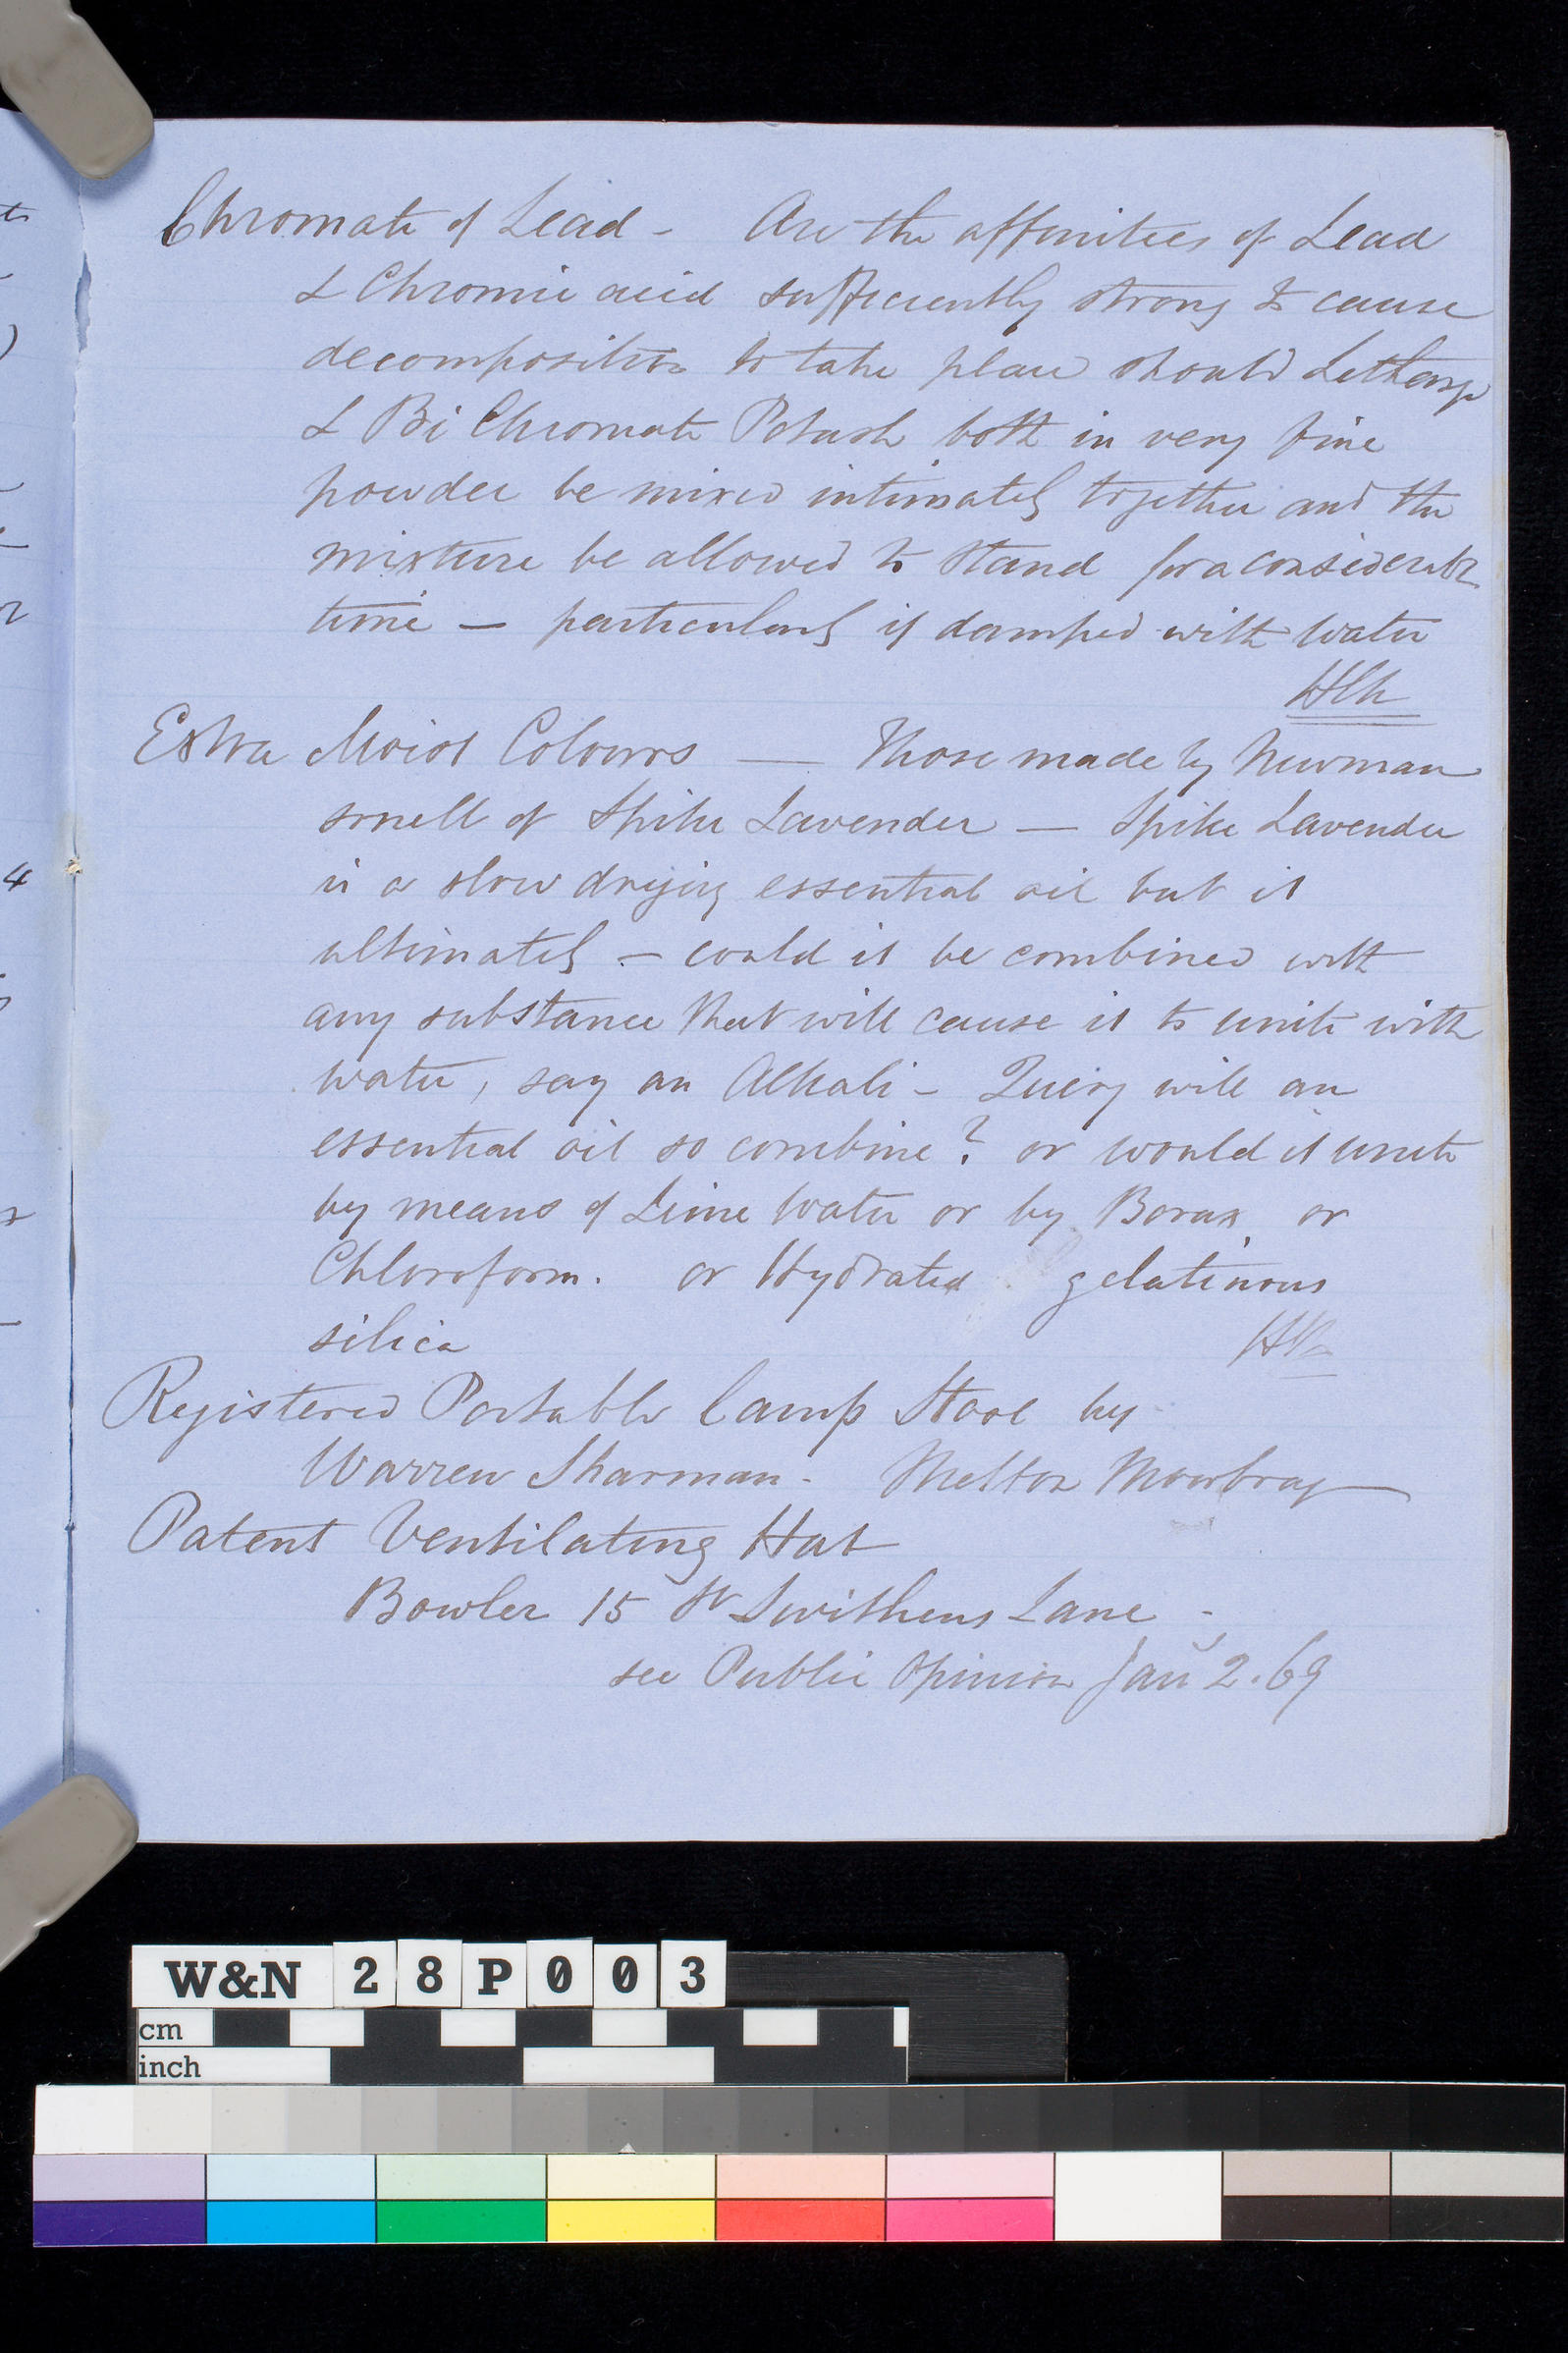 Chromate of Lead - Are the affinities of Lead
& Chromic acid sufficiently strong to cause
decomposition to take place should Letharge
& Bi Chromate Potash both in very fine
powder be mixed intimately together and the
mixture be allowed to stand for a considerable
time — particularly if damped with water
Extra Moist Colours — Those made by Newman
smell of Spike Lavender — Spike Lavender
is a slow drying essential oil but it
ultimately — could it be combined with
any substance that will cause it to unite with
water, say an Alkali - Query will an
essential oil so combine? or would it unite
by means of Lime Water or by Borax, or
Chloroform. or Hydrated gelatinous
silica
Registered Portable Camp Stool by
Warren Sharman - Melton Mowbray
Patent Ventilating Hat
Bowler 15 St Swithens Lane -
see Public Opinion Jan 2. 69
W&N 28P003
cm
inch
4